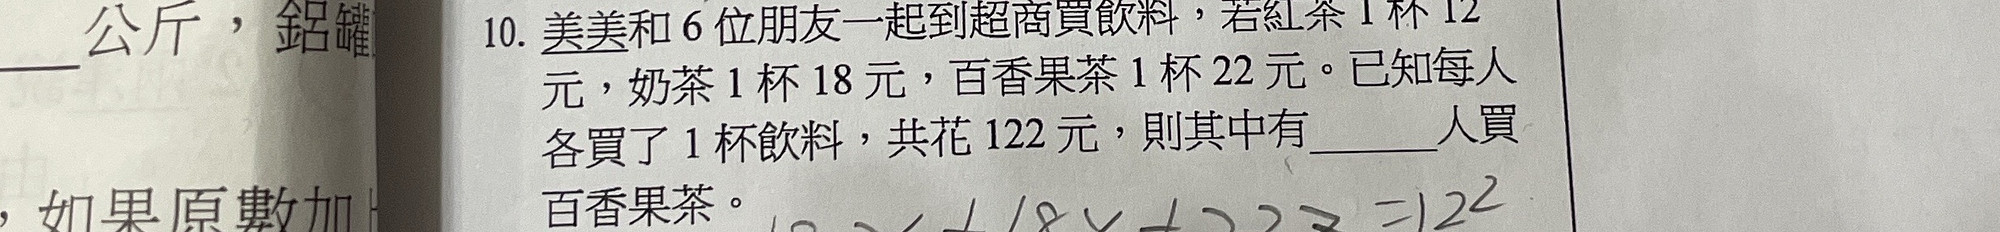 公斤，鋁罐
，如果原數加
10. 美美和 6 位朋友一起到超商買飲料，若紅茶 1 杯 12
元，奶茶 1 杯 18 元，百香果茶 1 杯 22 元。已知每人
各買了 1 杯飲料，共花 122 元，則其中有______人買
百香果茶。
+18y+22z=122